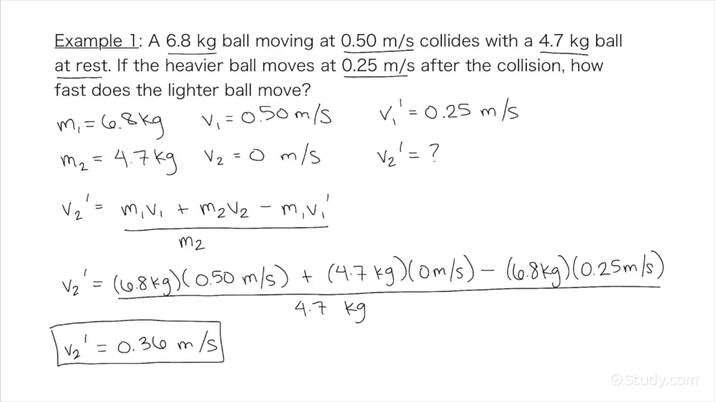 Example 1: A 6.8 kg ball moving at 0.50 m/s collides with a 4.7 kg ball
at rest. If the heavier ball moves at 0.25 m/s after the collision, how
fast does the lighter ball move?
m₁ = 6.8 kg v₁ = 0.50 m/s v₁' = 0.25 m/s
m₂ = 4.7 kg v₂ = 0 m/s v₂' = ?
v₂' = m₁v₁ + m₂v₂ - m₁v₁'
m₂
v₂' = (6.8 kg)(0.50 m/s) + (4.7 kg)(0 m/s) - (6.8 kg)(0.25 m/s)
4.7 kg
v₂' = 0.36 m/s
©Study.com